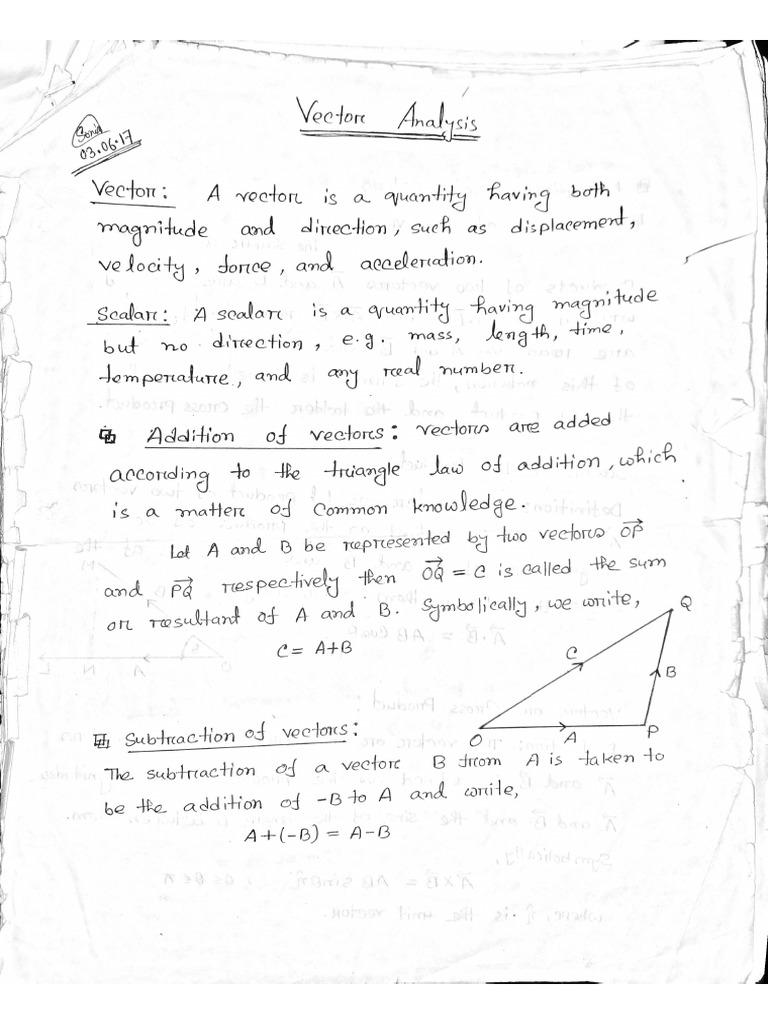 Vector Analysis
Sonia
03.06.17
Vector: A vector is a quantity having both
magnitude and direction, such as displacement,
velocity, force, and acceleration.
Scalar: A scalar is a quantity having magnitude
but no direction, e.g. mass, length, time,
temperature, and any real number.
Addition of vectors: vectors are added
according to the triangle law of addition, which
is a matter of Common knowledge.
Let A and B be represented by two vectors \overrightarrow{OP}
and \overrightarrow{PQ} respectively then \overrightarrow{OQ} = C is called the sum
or resultant of A and B. Symbolically, we write,
C = A+B
Q
C
B
O
A
P
Subtraction of vectors:
The subtraction of a vector B from A is taken to
be the addition of -B to A and write,
A+(-B) = A-B